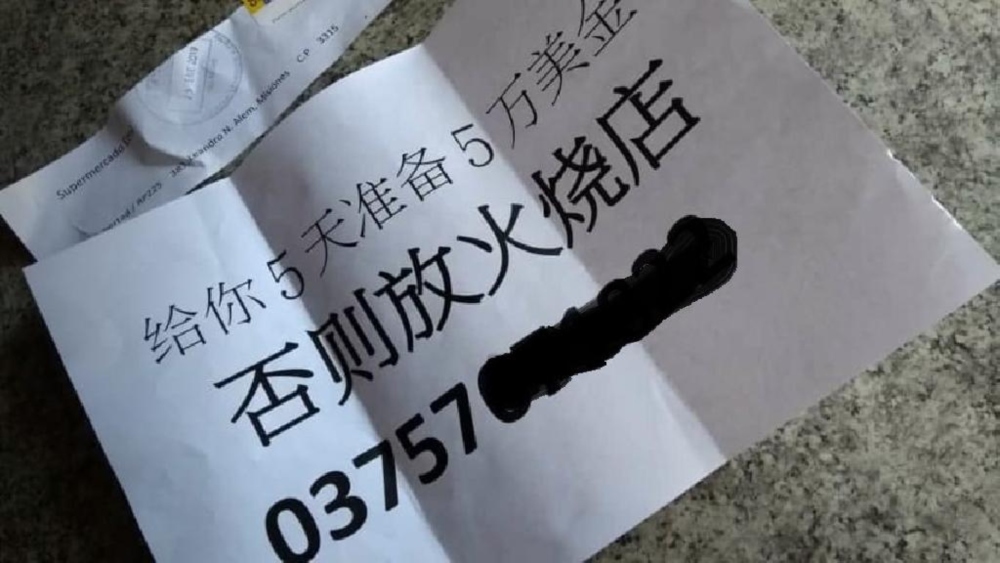 Supermercado
Leandro N. Alem, Misiones CP 3315
给你5天准备5万美金
否则放火烧店
03757